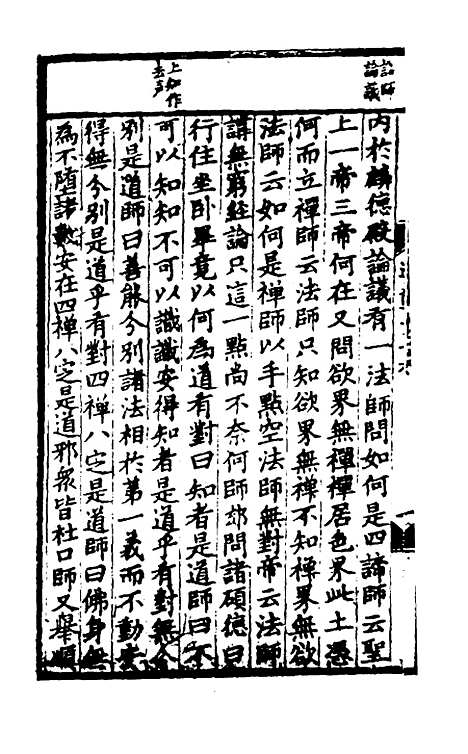 訟師論義
上知作去声
内於麟德殿論議有一法師問如何是四諦師云聖
上一帝三帝何在又問欲界無禪禪居色界此土憑
何而立禪師云法師只知欲界無禪不知禪界無欲
法師云如何是禅師以手點空法師無對帝云法師
講無窮經論只這一點尚不奈何師却問諸碩德曰
行住坐卧畢竟以何為道有對曰知者是道師曰不
可以知知不可以識識安得知者是道乎有對無分
别是道師曰善能分别諸法相於第一義而不動安
得無分别是道乎有對四禪八定是道師曰佛身無
為不堕諸數安在四禪八定是道邪衆皆杜口師又舉順